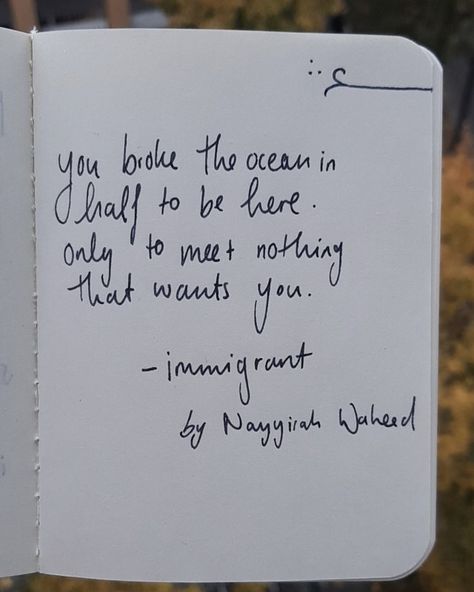 you broke the ocean in
half to be here.
only to meet nothing
that wants you.
- immigrant
by Nayyirah Waheed